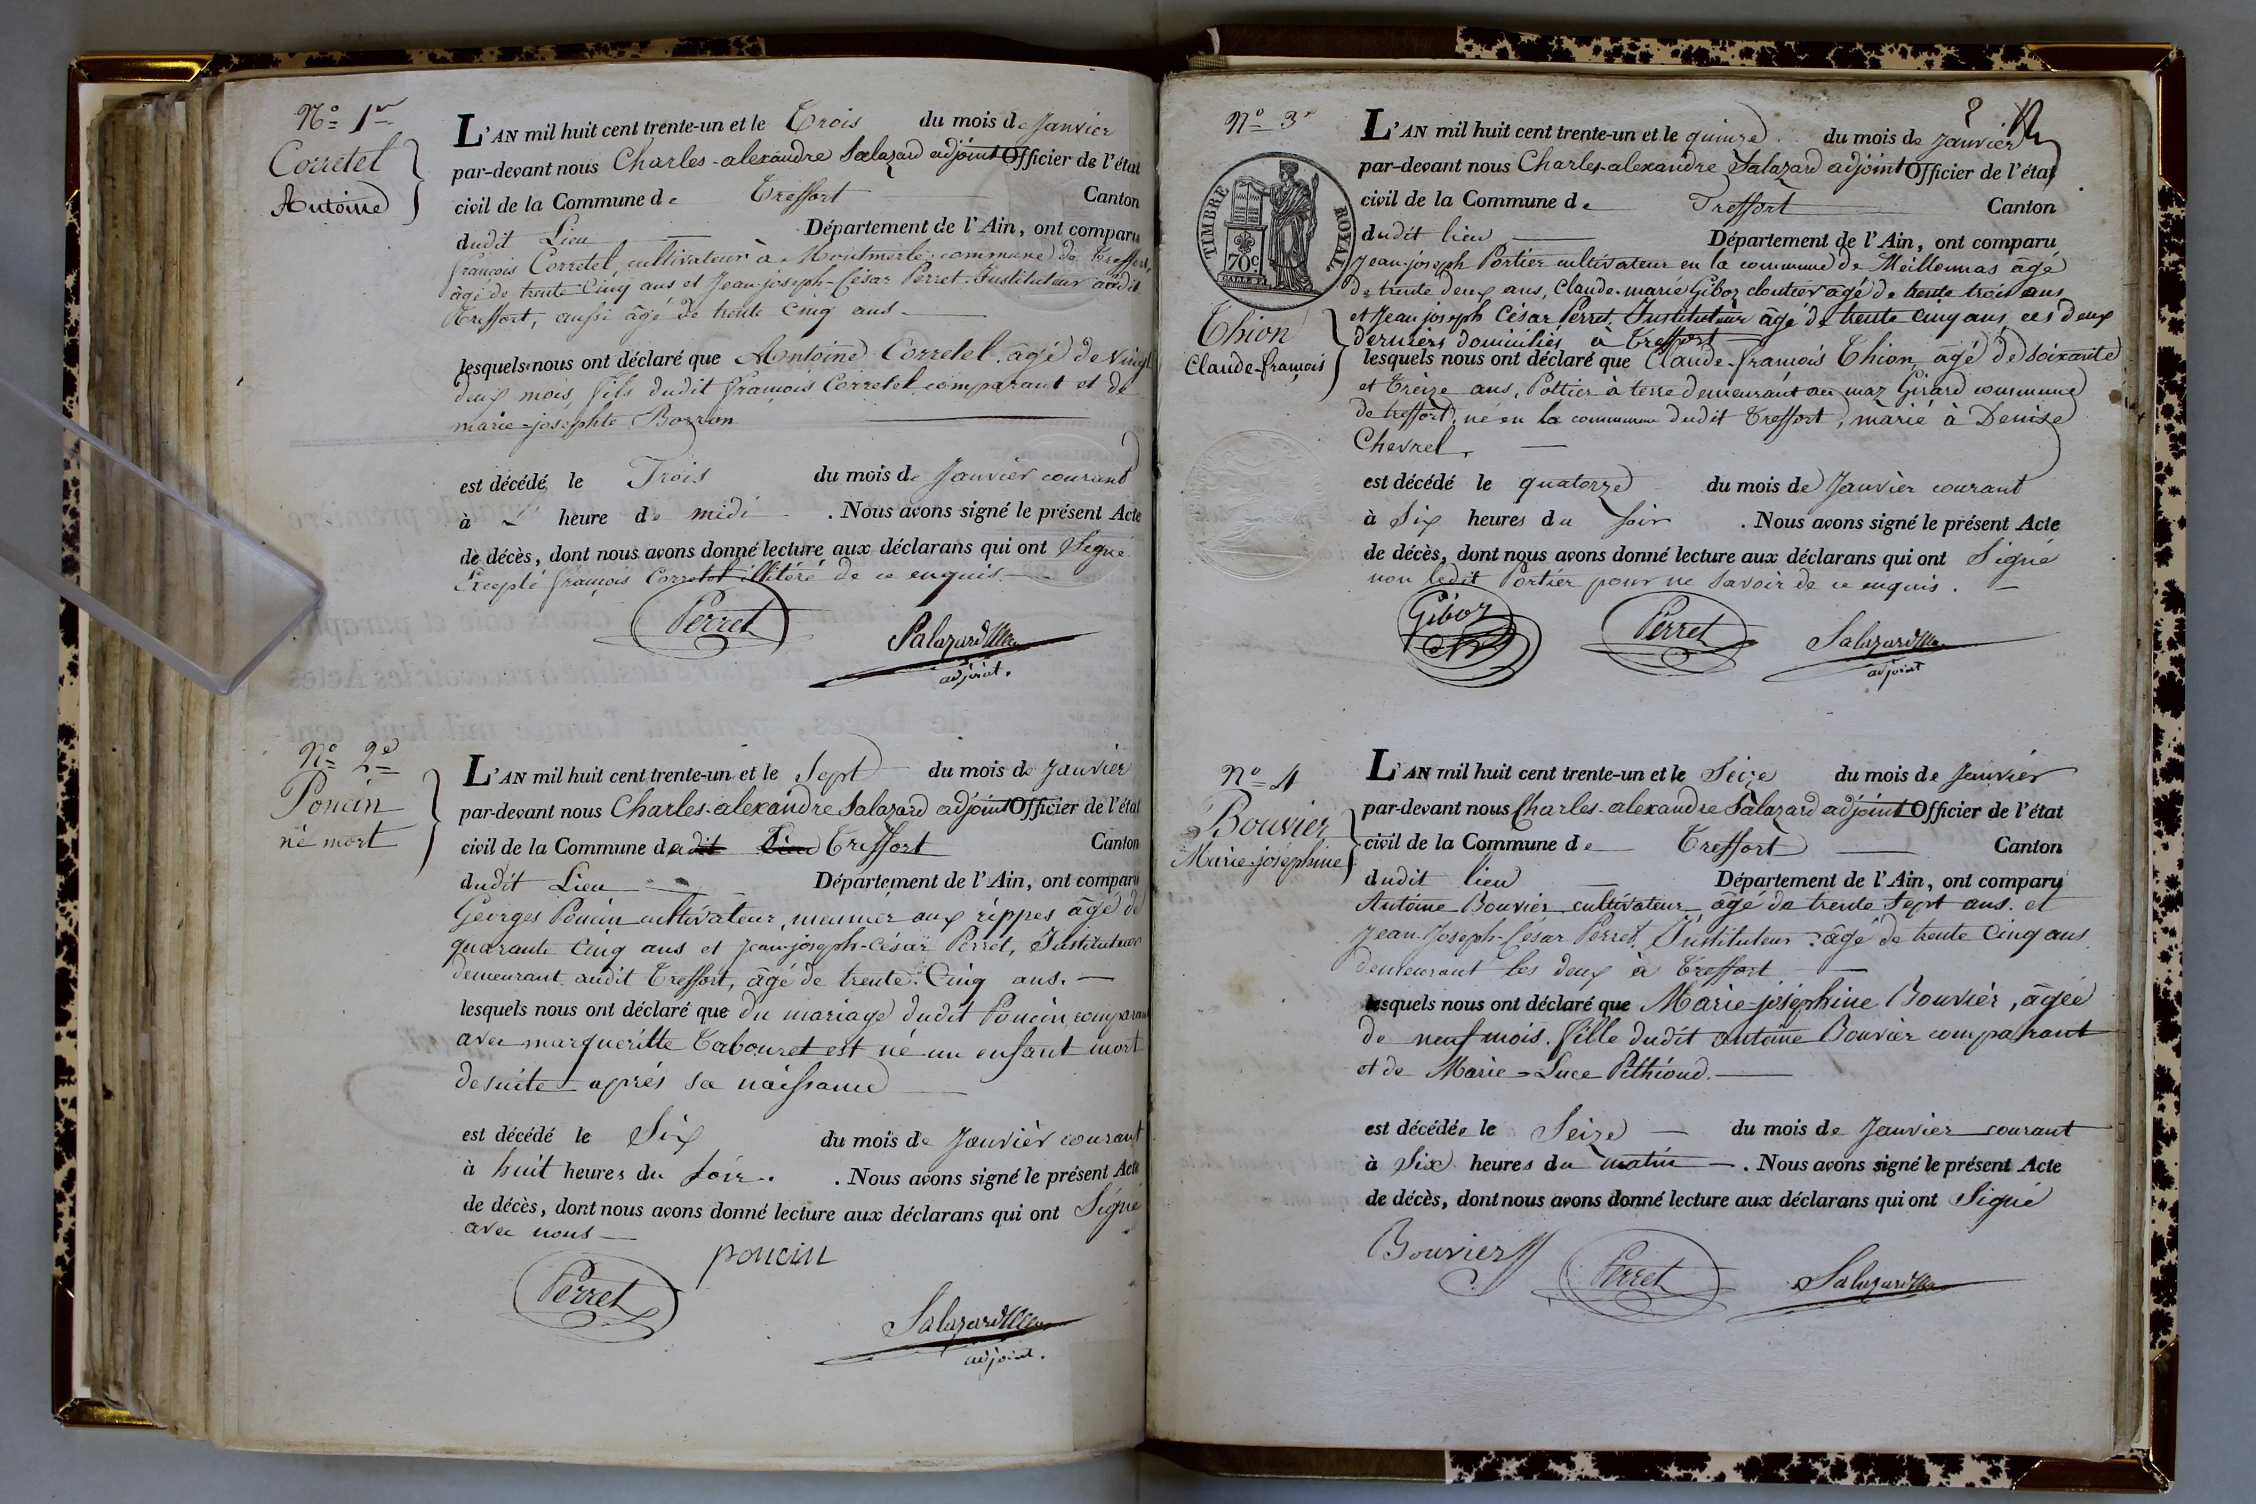 Nº 1er
Corretel
Antoine
L'AN mil huit cent trente-un et le Trois du mois de Janvier
par-devant nous Charles-alexandre Salazard adjoint Officier de l'état
civil de la Commune de Treffort Canton
dudit Lieu Département de l'Ain, ont comparu
françois Corretel, cultivateur à Montmerle commune de Treffort,
âgé de trente Cinq ans et Jean-joseph-César Perret Instituteur audit
Treffort, aussi âgé de trente cinq ans
lesquels nous ont déclaré que Antoine Corretel, âgé de Vingt
deux mois, fils dudit françois Corretel comparant et de
marie-josephte Borron
est décédé le Trois du mois de Janvier courant
à heure de midi . Nous avons signé le présent Acte
de décès, dont nous avons donné lecture aux déclarans qui ont Signé
Excepté françois Corretel illitéré de ce enquis.
Perret
Salazard
adjoint.
Nº 2e
Poncin
né mort
L'AN mil huit cent trente-un et le Sept du mois de Janvier
par-devant nous Charles-alexandre Salazard adjoint Officier de l'état
civil de la Commune dudit Lieu Treffort Canton
dudit Lieu Département de l'Ain, ont comparu
Georges Poncin cultivateur, meunier aux rippes âgé de
quarante Cinq ans et Jean-joseph-César Perret, Instituteur
demeurant audit Treffort, âgé de trente Cinq ans.
lesquels nous ont déclaré que du mariage dudit Poncin comparant
avec margueritte Tabouret est né un enfant mort
desuite après sa naissance
est décédé le Six du mois de Janvier courant
à huit heures du soir. . Nous avons signé le présent Acte
de décès, dont nous avons donné lecture aux déclarans qui ont Signé
avec nous
poncin
Perret
Salazard
adjoint.
2
Nº 3e
TIMBRE ROYAL
70c
Thion
Claude-françois
L'AN mil huit cent trente-un et le quinze du mois de Janvier
par-devant nous Charles-alexandre Salazard adjoint Officier de l'état
civil de la Commune de Treffort Canton
dudit lieu Département de l'Ain, ont comparu
Jean-joseph Portier cultivateur en la commune de Meillonnas âgé
de trente deux ans, Claude-marie Giboz cloutier âgé de trente trois ans
et Jean joseph César Perret, Instituteur âgé de trente cinq ans, ces deux
derniers domiciliés à Treffort
lesquels nous ont déclaré que Claude-françois Thion, âgé de soixante
et Treize ans, Pottier à terre demeurant au maz Girard commune
de treffort, né en la commune dudit Treffort, marié à Denise
Chevrel,
est décédé le quatorze du mois de Janvier courant
à Six heures du soir . Nous avons signé le présent Acte
de décès, dont nous avons donné lecture aux déclarans qui ont Signé
non ledit Portier pour ne savoir de ce enquis.
Giboz
Perret
Salazard
adjoint
Nº 4
Bouvier
Marie-joséphine
L'AN mil huit cent trente-un et le Seize du mois de Janvier
par-devant nous Charles-alexandre Salazard adjoint Officier de l'état
civil de la Commune de Treffort Canton
dudit lieu Département de l'Ain, ont comparu
Antoine Bouvier cultivateur âgé de trente Sept ans. et
Jean-Joseph-César Perret, Instituteur âgé de trente Cinq ans
demeurant les deux à Treffort
lesquels nous ont déclaré que Marie-joséphine Bouvier, âgée
de neuf mois. fille dudit antoine Bouvier comparant
et de Marie-Luce Péthioud.
est décédée le Seize du mois de Janvier courant
à Six heures du matin . Nous avons signé le présent Acte
de décès, dont nous avons donné lecture aux déclarans qui ont Signé
Bouvier
Perret
Salazard